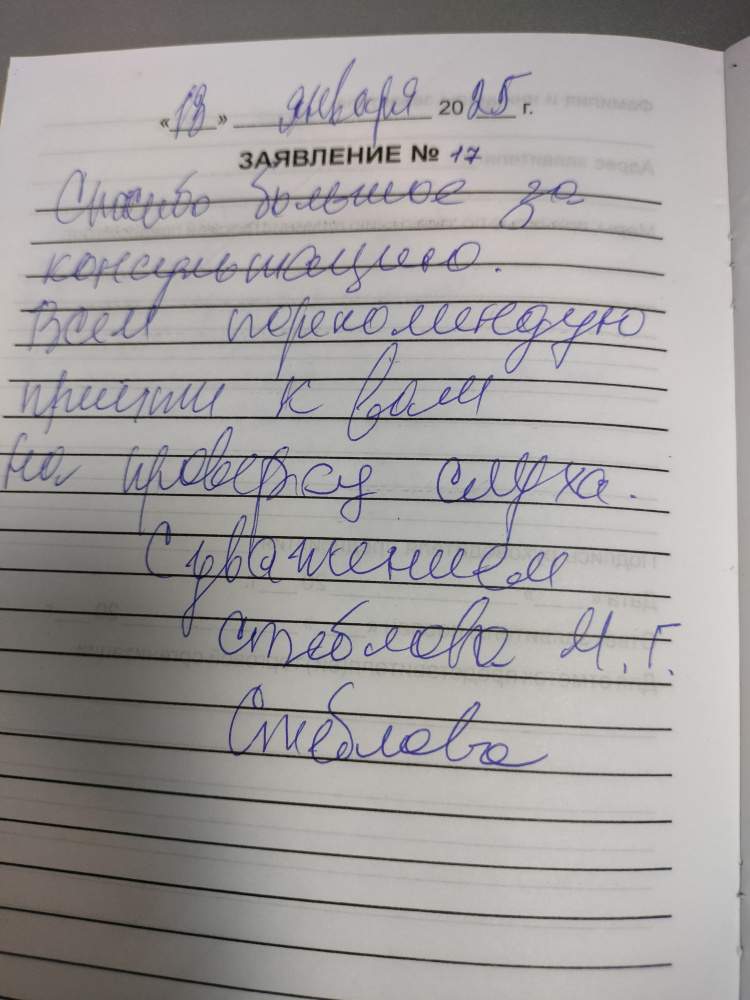 «13» января 2025 г.
ЗАЯВЛЕНИЕ № 17
Спасибо большое за
консультацию.
Всем порекомендую
прийти к вам
на проверку слуха.
С уважением
Стеблова М.Г.
Стеблова